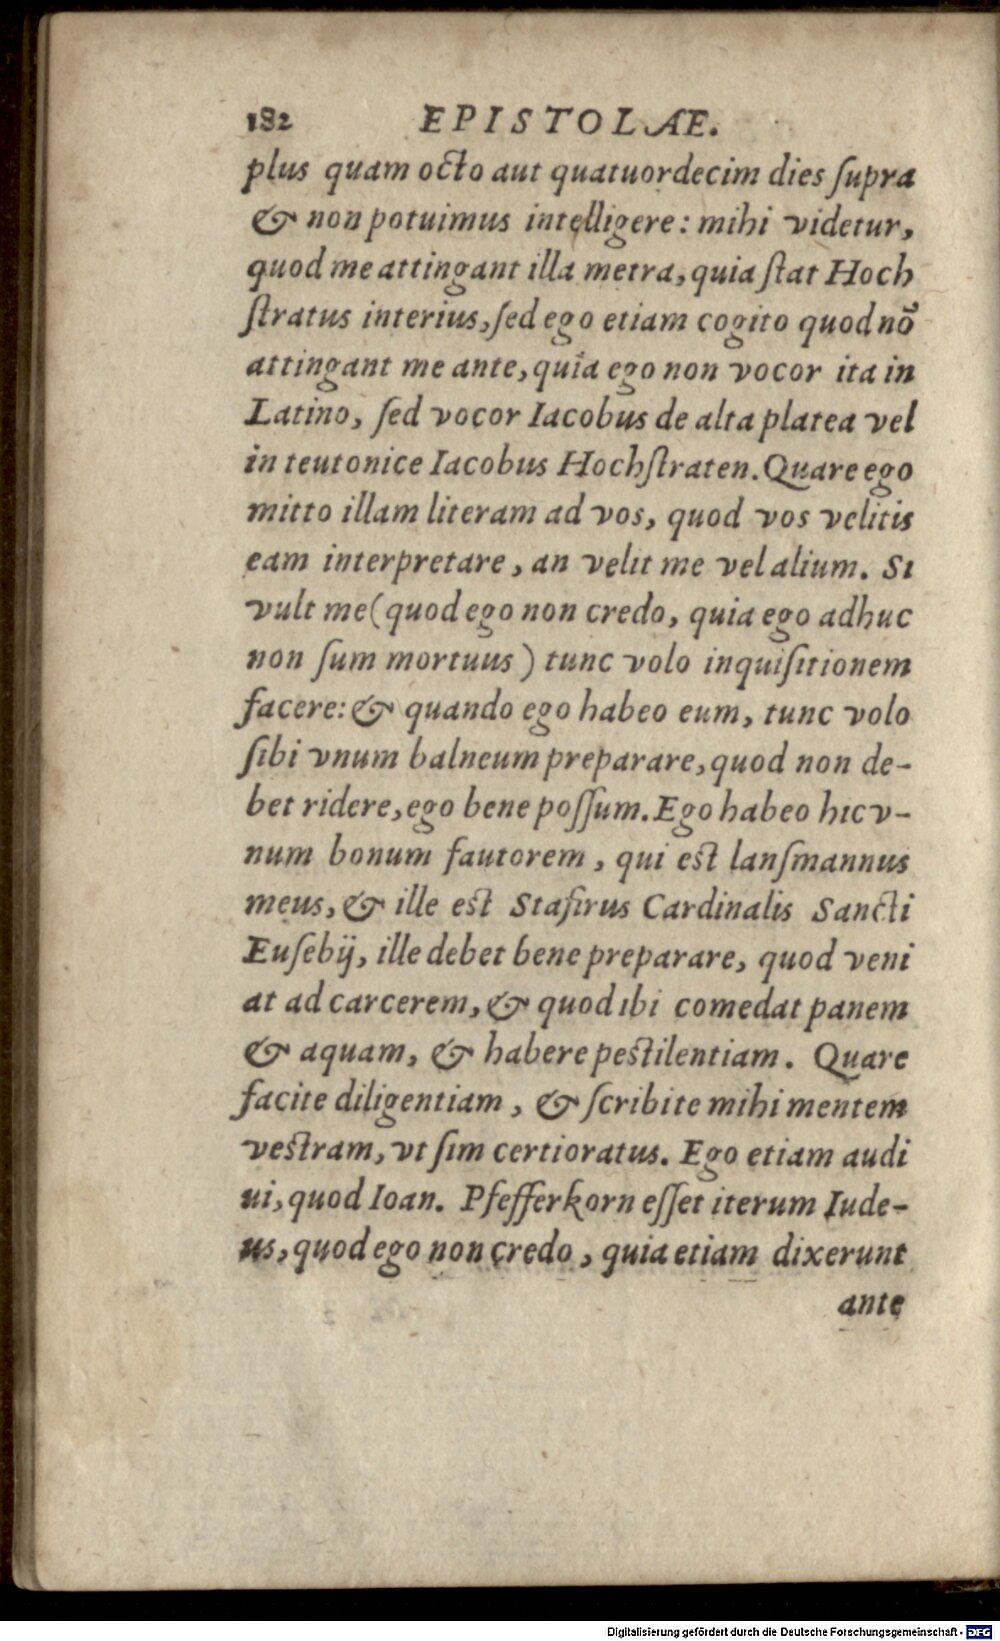 182 EPISTOLAE.
plus quam octo aut quatuordecim dies ſupra
& non potuimus intelligere: mihi videtur,
quod me attingant illa metra, quia ſtat Hoch
ſtratus interius, ſed ego etiam cogito quod nõ
attingant me ante, quia ego non vocor ita in
Latino, ſed vocor Iacobus de alta platea vel
in teutonice Iacobus Hochſtraten. Quare ego
mitto illam literam ad vos, quod vos velitis
eam interpretare, an velit me vel alium. Si
vult me (quod ego non credo, quia ego adhuc
non ſum mortuus) tunc volo inquiſitionem
facere: & quando ego habeo eum, tunc volo
ſibi vnum balneum preparare, quod non de-
bet ridere, ego bene poſſum. Ego habeo hic v-
num bonum fautorem, qui est lanſmannus
meus, & ille est Stafirus Cardinalis Sancti
Euſebij, ille debet bene preparare, quod veni
at ad carcerem, & quod ibi comedat panem
& aquam, & habere pestilentiam. Quare
facite diligentiam, & ſcribite mihi mentem
vestram, vt ſim certioratus. Ego etiam audi
ui, quod Ioan. Pfefferkorn eſſet iterum Iude-
us, quod ego non credo, quia etiam dixerunt
ante
Digitalisierung gefördert durch die Deutsche Forschungsgemeinschaft - DFG